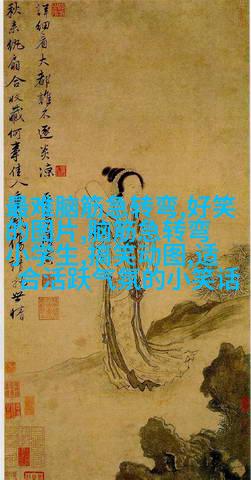 秋來紈扇合收藏何事佳人
世情
詳細看大都誰不逐炎涼
最难脑筋急转弯,好笑
的图片,脑筋急转弯
小学生,搞笑动图,适
合活跃气氛的小笑话